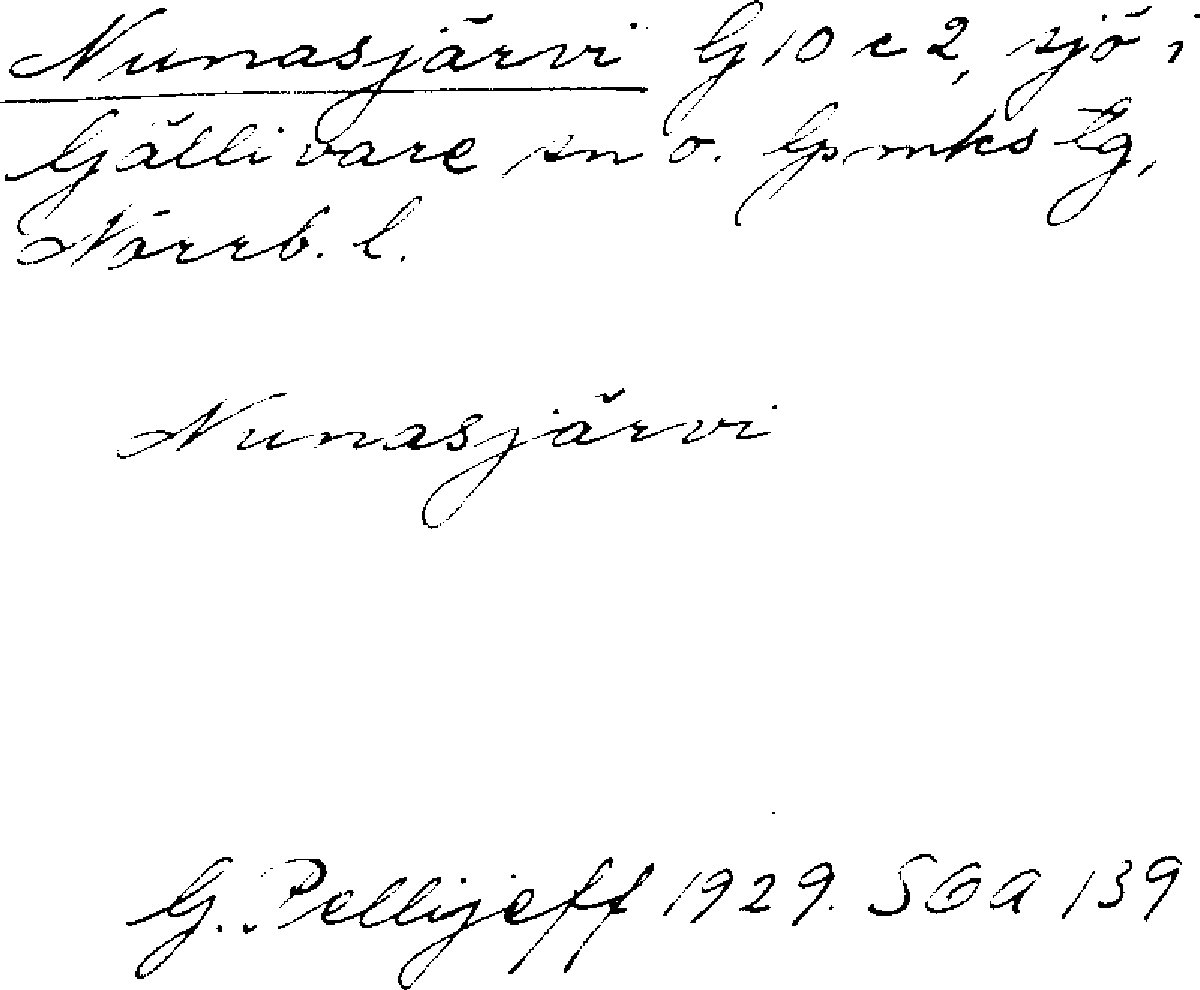 Nunasjärvi G 10 c 2, sjö i
Gällivare sn o. lpmks tg,
Norrb. l.
Nunasjärvi
G. Pellijeff 1929. SOA 139